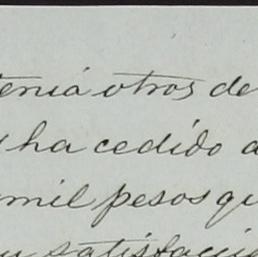 tenia otros de
ha cedido a
mil pesos qu
su satisfacció